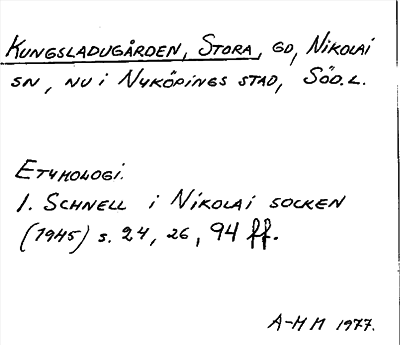 KUNGSLADUGÅRDEN, STORA, GD, NIKOLAI
SN, NU I NYKÖPINGS STAD, SÖD.L.
ETYMOLOGI.
I. SCHNELL I NIKOLAI SOCKEN
(1945) s. 24, 26, 94 ff.
A-M M 1977.